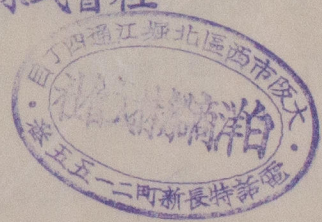 式會社
大阪市西區北堀江通四丁目
白洋商 會社
電話特長新町二一五五番